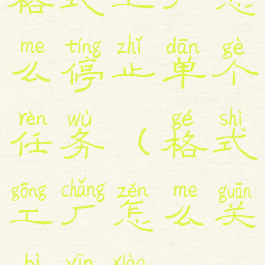 me tíng zhǐ dān gè
么停止单个
rèn wù gé shì
任务（格式
gōng chǎng zěn me guān
工厂怎么关
bì yīn xiào